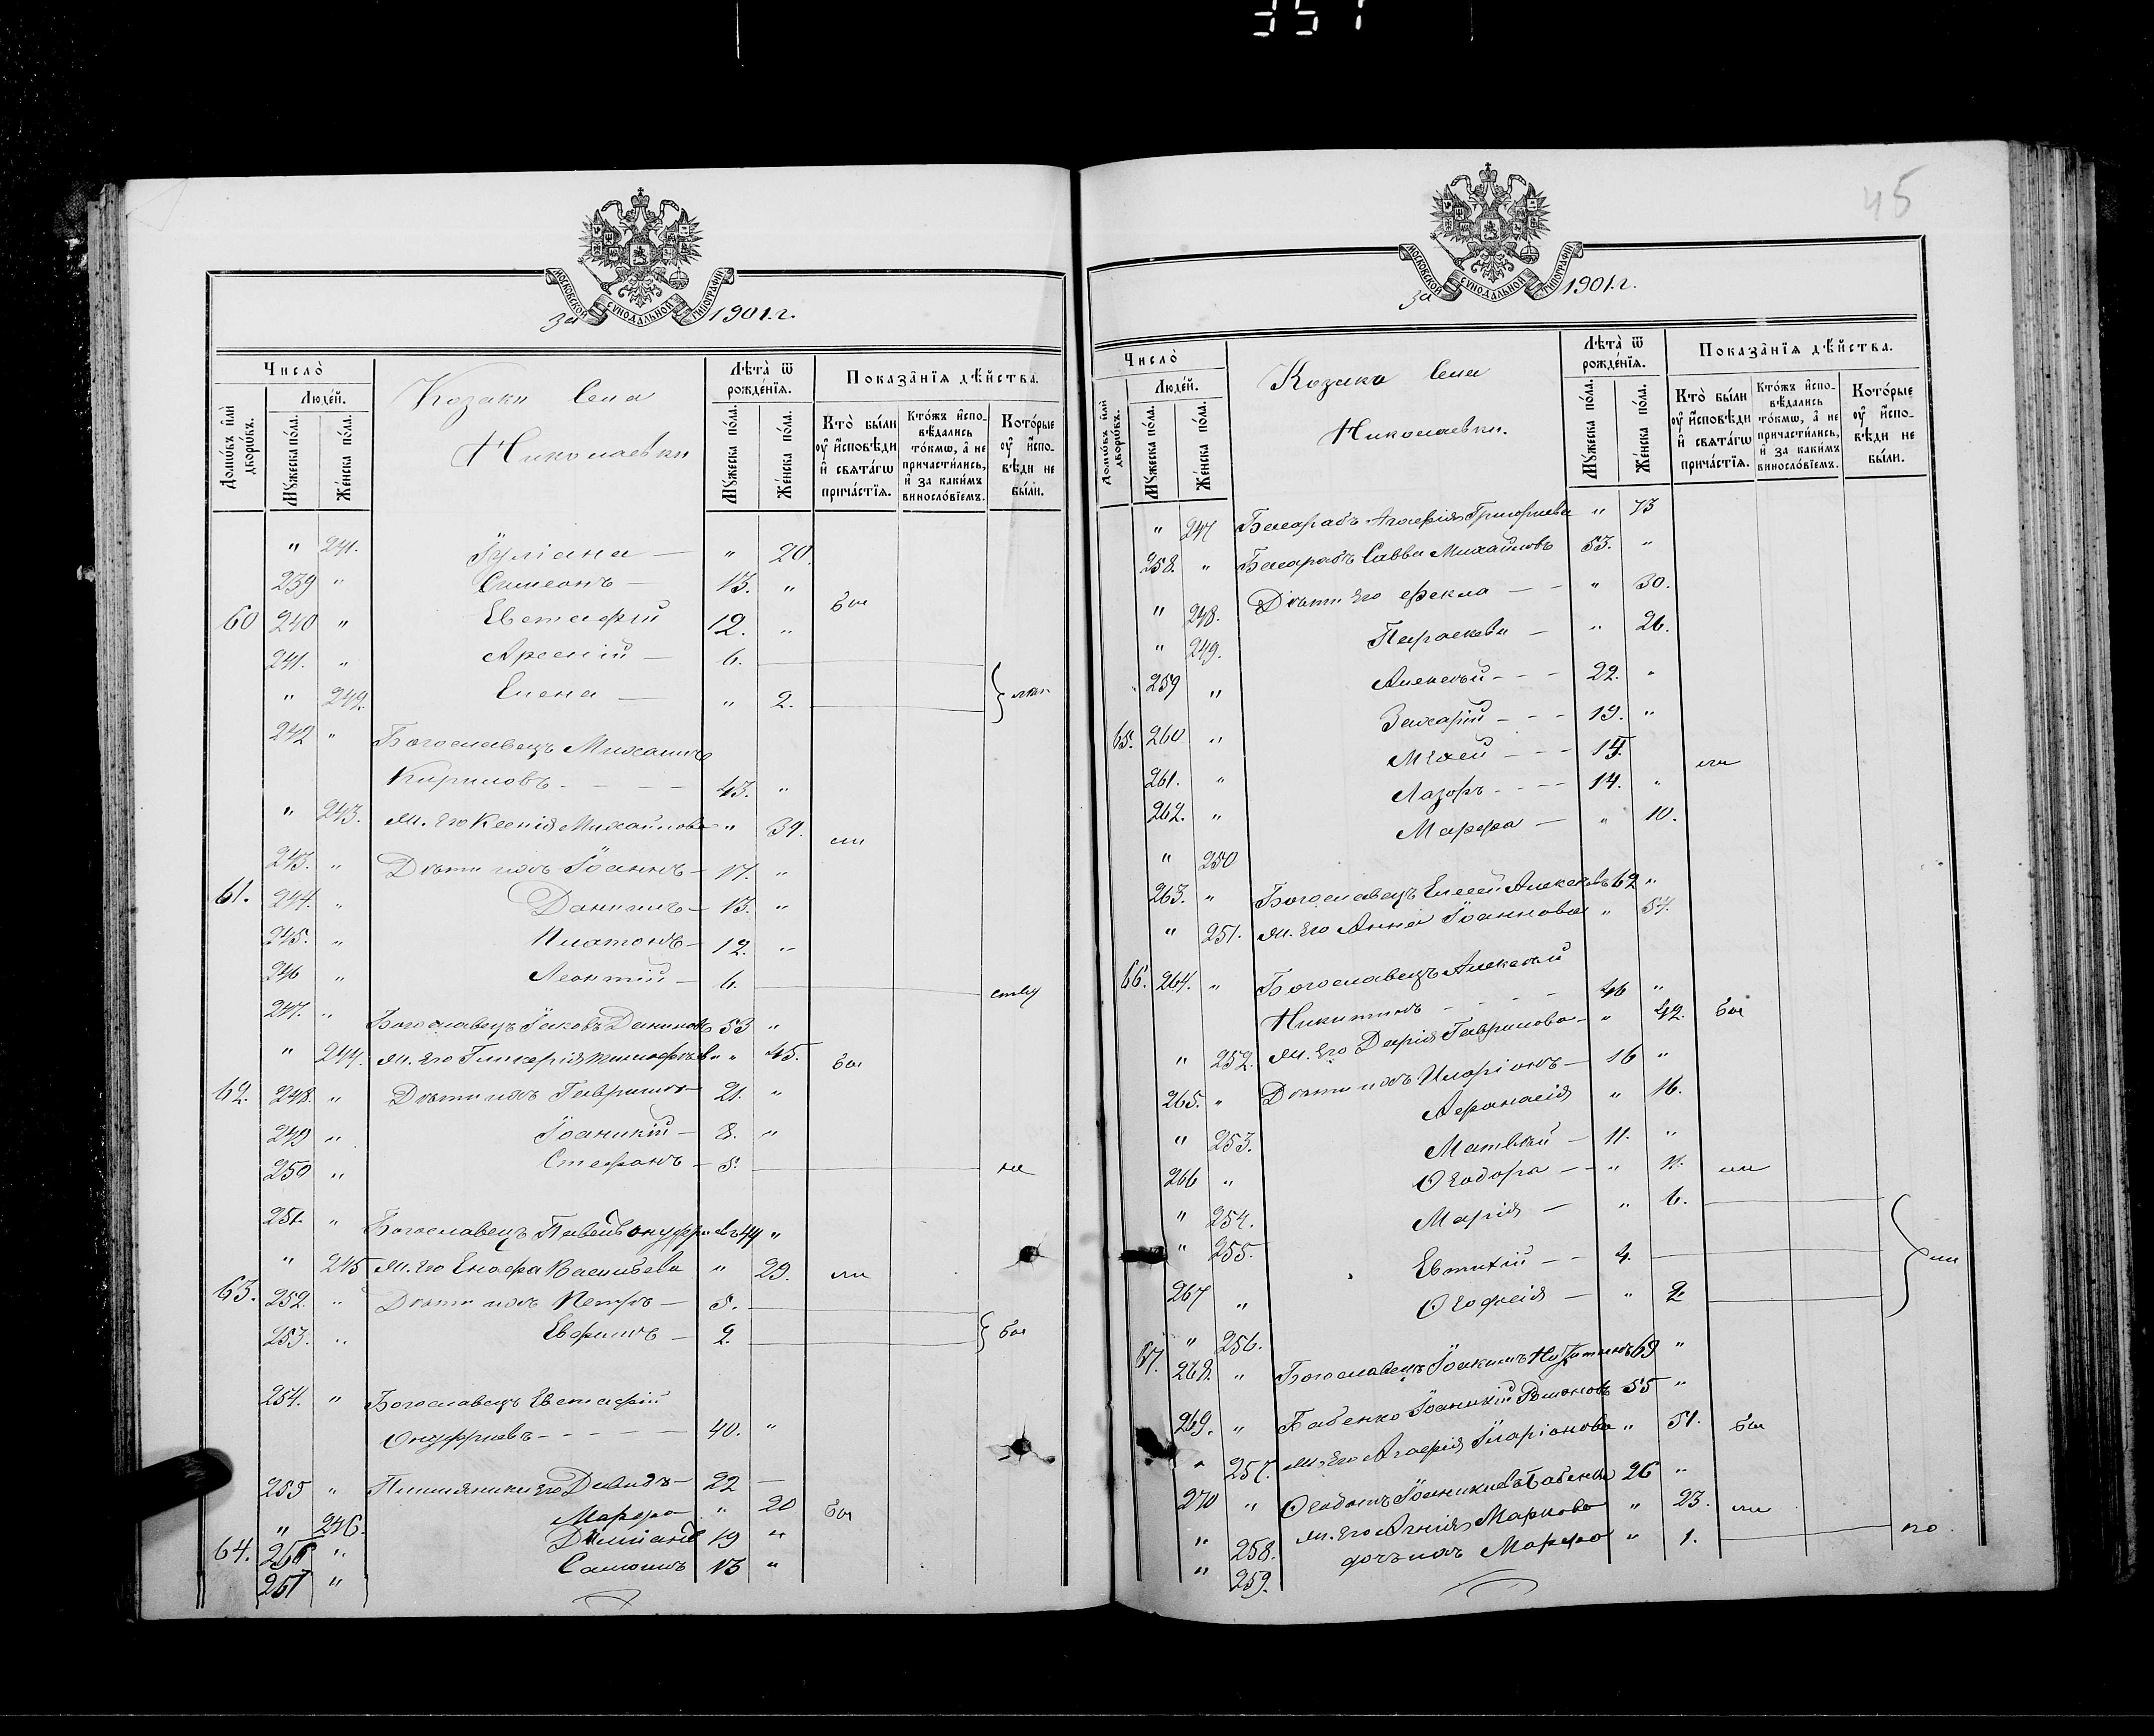 351
МОСКОВСКОЙ СѴНОДАЛЬНОЙ ТИПОГРАФІИ
за 1901. г.
Число̀
Людéй.
Домѡ́въ и҆лѝ дворѡ́въ.
Мꙋ́жеска по́ла.
Жéнска по́ла.
Козаки Села
Николаевки
Лѣта̀ ѿ рождéнїѧ.
Мꙋ́жеска по́ла.
Жéнска по́ла.
Показа̑нїѧ дѣ́йства.
Ктò бы́ли ᲂу҆ и҆́сповѣди и҆ свѧта́гѡ прича́стїѧ.
Кто́жъ и҆спо-вѣ́дались то́кмѡ, а҆ не причасти́лись, и҆ за каки́мъ винослóвїемъ.
Кото́рые ᲂу҆ и҆спо-вѣди не бы́ли.
" 241. Іуліана — " 20.
239 " Симеонъ — 13. "
60 240 " Евстафій 12. " бы
241. " Арсеній — 6.
" 242. Елена — " 2.
242 " Богославецъ Михаилъ
Кириловъ - - - 43. "
" 243. ж. его Ксенія Михайлова " 39. ли
243. " Дѣти ихъ Іоаннъ — 17. "
61. 244. " Даніилъ — 13. "
245. " Платонъ — 12. "
246 " Леонтій — 6.
247. " Богославецъ Іаковъ Даниловъ 53 "
" 244. ж. его Гликерія " 45. бы
62. 248. " Дѣти ихъ Гавріилъ — 21. "
249 " Іоаникій — 8. "
250 " Стефанъ — 5. не
251. " Богославецъ Павелъ Онуфріевъ 44 "
" 245 ж. его Васильева " 29. ли
63. 252. " Дѣти ихъ Петръ — 5.
253. " Ефримъ — 2. бы
254. " Богославецъ Евстафій
Онуфріевъ - - - - - 40. "
255 " Племянники его Давидъ — 22 —
" 246. Марфа " 20 бы
64. 256 " Даміанъ 19 "
257 " Самоилъ 13 "
45
МОСКОВСКОЙ СѴНОДАЛЬНОЙ ТИПОГРАФІИ
за 1901. г.
Число̀
Людéй.
Домѡ́въ и҆лѝ дворѡ́въ.
Мꙋ́жеска по́ла.
Жéнска по́ла.
Козаки Села
Николаевки.
Лѣта̀ ѿ рождéнїѧ.
Мꙋ́жеска по́ла.
Жéнска по́ла.
Показа̑нїѧ дѣ́йства.
Ктò бы́ли ᲂу҆ и҆́сповѣди и҆ свѧта́гѡ прича́стїѧ.
Кто́жъ и҆спо-вѣ́дались то́кмѡ, а҆ не причасти́лись, и҆ за каки́мъ винослóвїемъ.
Кото́рые ᲂу҆ и҆спо-вѣди не бы́ли.
" 247 Бесарабъ Агафія Григориева " 73
258. " Бесарабъ Савва Михайловъ 53. "
" 248. Дѣти его Фекла — — " 30.
" 249. Параскева — " 26.
259 " Алексѣй - - - 22. "
65. 260 " Захарій - - - 19. "
261. " Моѵсей - - -
262. " Лазорь - - - 14. " ли
" 250 Марфа — " 10.
263. " Богославецъ Елисей Алексѣевъ 62 "
" 251. ж. его Анна Іоаннова " 57.
66. 264. " Богославецъ Алексѣй
Никитинъ - - - 46 "
" 252. ж. его Дарія Гаврилова — " 42. бы
265. " Дѣти ихъ Иларіонъ — 16 "
" 253. Афанасія " 16.
266 " Матвѣй — 11. "
" 254. Ѳеодора — — " ли
" 255. Марія — " 6.
267 " Евтихій — — 4. ли
" 256. Ѳеофсія — " 2
67. 268. " Богославецъ Іоакимъ Никитинъ 69 "
269. " Бабенко Іоаникій 55 "
" 257. ж. его Агафія Иларіонова " 51. бы
270 " Ѳеодотъ Іоаникіевъ Бабенко 26 "
" 258. ж. его Агнія Маркова " 23. ли
" 259. дочь ихъ Марфа " 1.